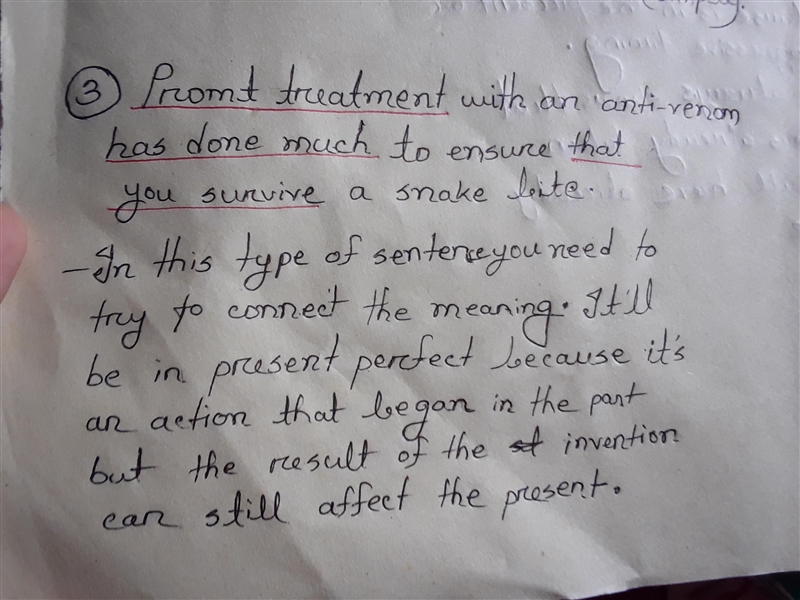 Company.
③ Promt treatment with an anti-venom
has done much to ensure that
you survive a snake bite.
– In this type of sentence you need to
try to connect the meaning. It'll
be in present perfect because it's
an action that began in the past
but the result of the invention
can still affect the present.